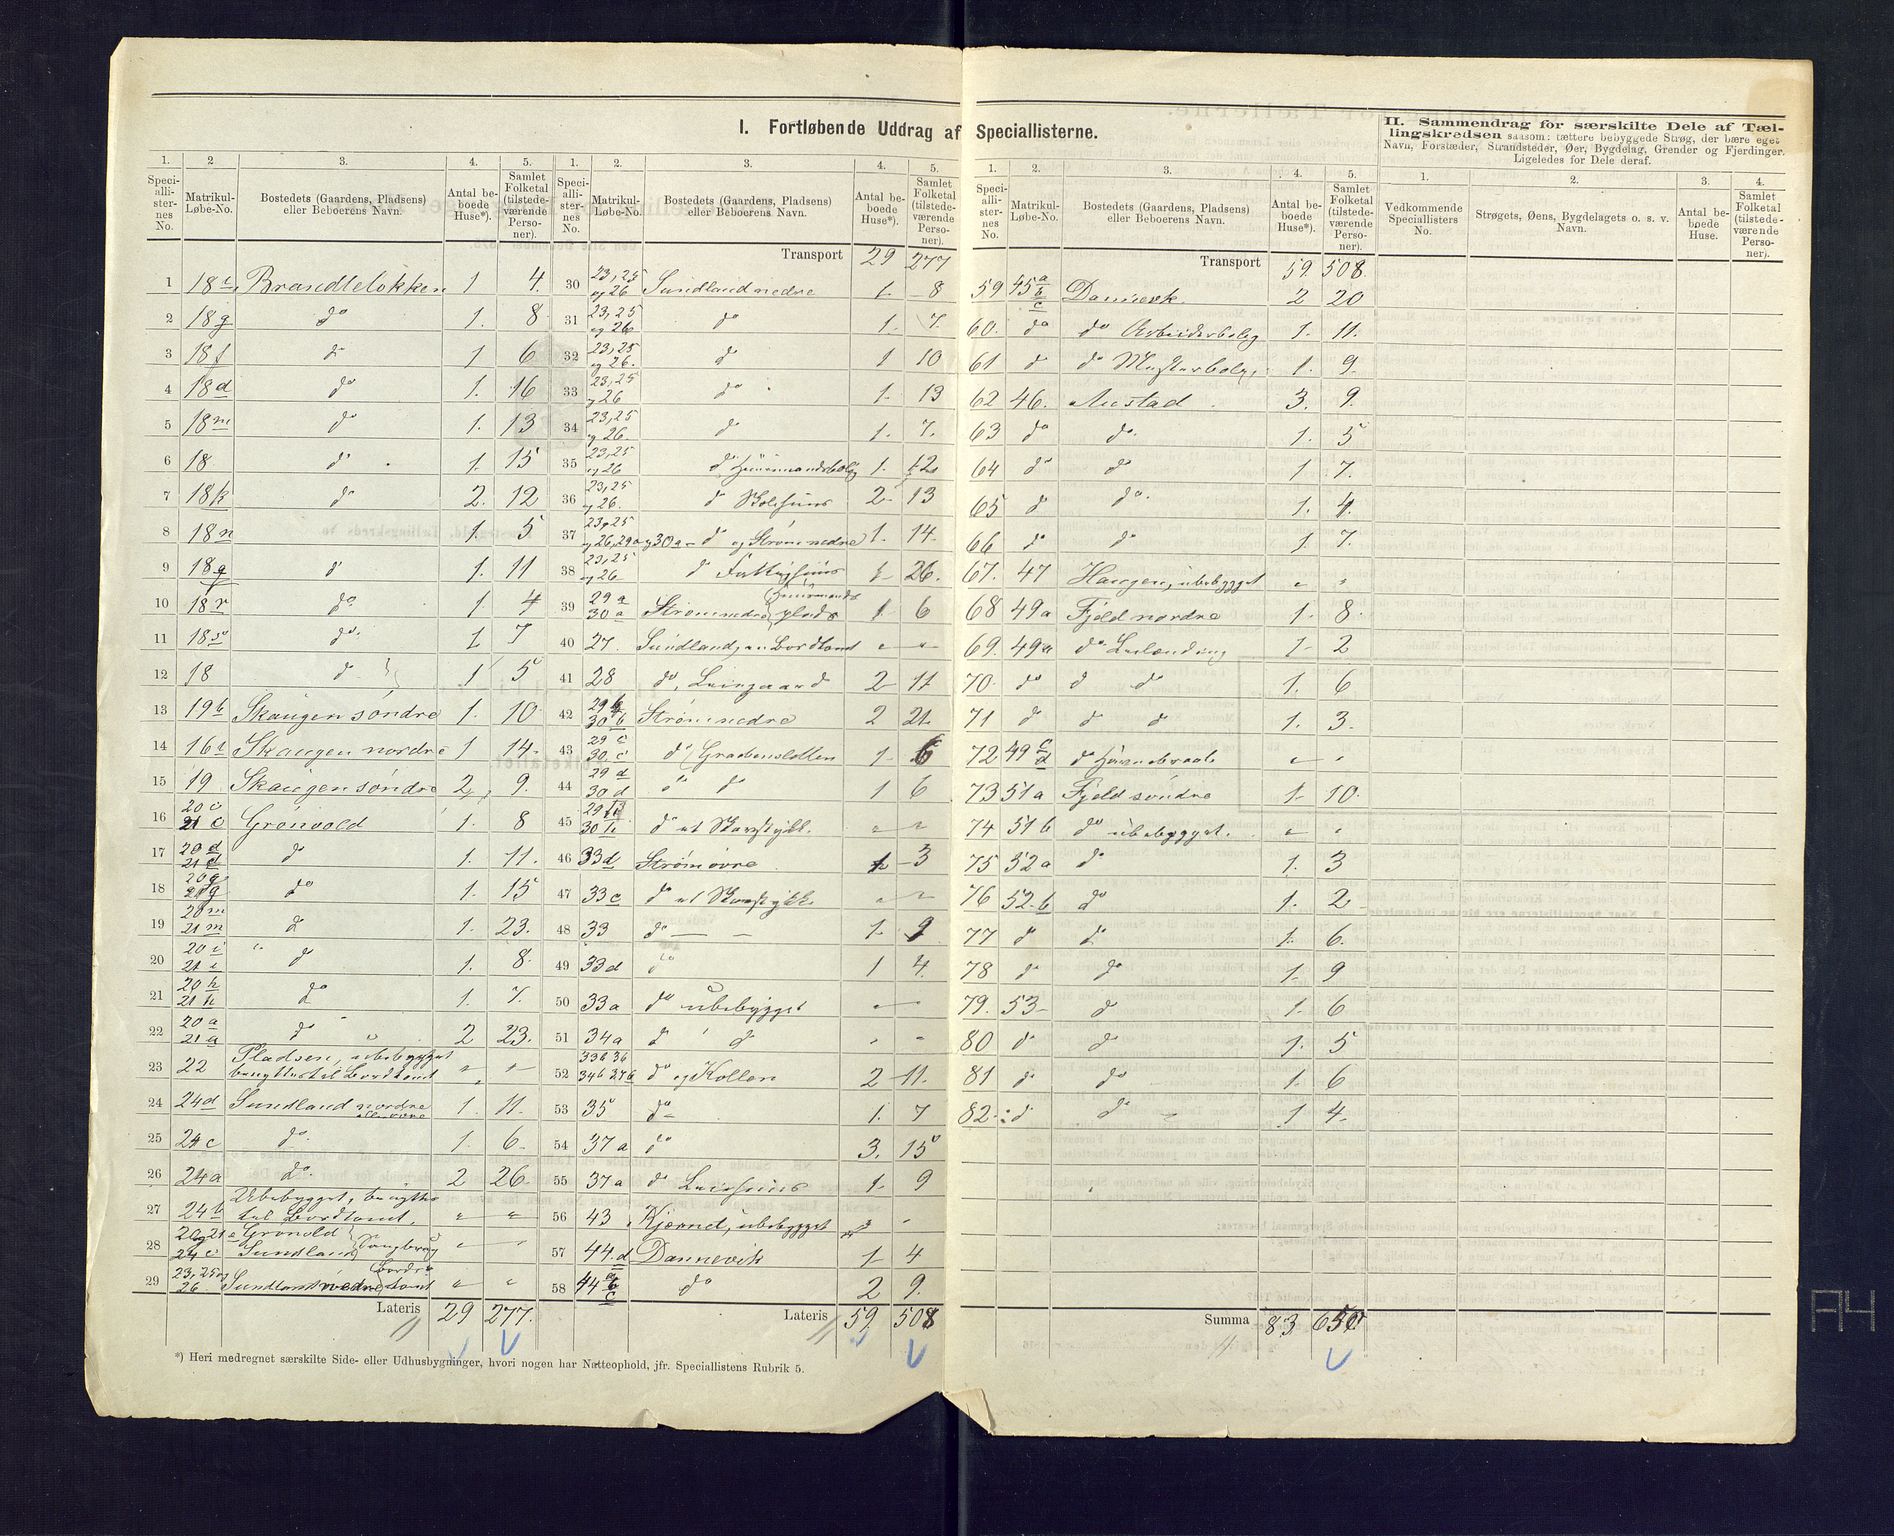 I. Fortløbende Uddrag af Speciallisterne.
II. Sammendrag for særskilte Dele af Tællingskredsen saasom: tættere bebyggede Strøg, der bære eget Navn, Forstæder, Strandsteder, Øer, Bygdelag, Grender og Fjerdinger. Ligeledes for Dele deraf.
1. 2 3. 4. 5. 1. 2. 3. 4. 5.
Speciallisternes No. Matrikul-Løbe-No. Bostedets (Gaardens, Pladsens) eller Beboerens Navn. Antal beboede Huse*). Samlet Folketal (tilstedeværende Personer).
1 18 c Brandteløkken 1 4.
2 18g do 1. 8.
3 18f do 1 6
4 18d do 1. 16
5 18m do 1. 13
6 18 do 1. 15
7 18k do 2. 12
8 18n 1. 5
9 18q do 1. 11
10 18r do 1. 4
11 18s do 1 7
12 18 do 1 5
13 19b Skaugen søndre 1. 10
14 16i Skaugen nordre 1 14.
15 19 Skaugen søndre 2 9.
16 20c 21c Grønvold 1. 8
17 20d 21d do 1. 11.
18 20g 21g do 1. 15
19 20m 21m do 1. 23.
20 20i 21i do 1. 8.
21 20h 21h do 1. 7.
22 20a 21a do 2 23.
23 22 Pladsen, ubebygget benyttes til Bordtomt " "
24 24d Sundland nordre 1. 11.
25 24c do. 1. 6
26 24a do. 2 26
27 24b Ubebygget, benyttes til Bordtomt. " "
28 20 og 21 Sundland " "
29 23, 25 og 26. Sundland nedre tomt " "
Lateris 29 277.
Transport 29 277
30 23, 25 og 26 Sundland nedre 1 8
31 23, 25 og 26 do 1. 7.
32 23, 25 og 26. do 1 10
33 23, 25 og 26 do 1. 13
34 23, 25 og 26. do 1. 7.
35 23, 25 og 26 do Huusmandsbolig 1. 12
36 23, 25 og 26. do 2 13
37 23, 25 og 26, 29a og 30a do og Strøm nedre 1. 14.
38 23, 25 og 26 do Fattighuus 1 26.
39 29a 30a Strøm nedre Huusmandsplads 1 6
40 27. Sundland, en Bordtomt " "
41 28 do, Leiegaard 2 11
42 29b 30b Strøm nedre 2 21.
43 29c 30c do 1 6
44 29d 30d do do 1 6
45 do et Skovstykke. " "
46 33d Strøm øvre 1 3
47 33c do et Skovstykke " "
48 33 do 1. 9
49 33d do 1 4.
50 33a do ubebygget " "
51 34a do do " "
52 33b 36 34b 37b do og Kollen 2 11.
53 35 do 1. 7
54 37a do 3. 15
55 37a do 1. 9
56 43 Kjørnd, ubebygget " "
57 44.d Dannevik 1 4
58 44 b c do 2 9.
Lateris 59 508
Transport 59. 508.
59 45 a b c Dannevik 2 20
60. do do Arbeiderbolig 1. 11.
61 do do Mesterbolig 1. 9.
62 46. Austad 3. 9.
63 do do. 1. 5
64 do do 1. 7.
65 do do. 1. 4.
66 do do 1. 7.
67. 47 Haugen, ubebygget " "
68 49a Fjeld nordre 1. 8.
69. 49a do 1 2
70. do do do 1. 6
71 do do do 1. 3.
72 49 c d do " "
73 51a Fjeld søndre 1. 10.
74 51b do ubebygget. " "
75 52a do 1. 3
76 52.b do 1. 2
77 do do 1. 6.
78 do do 1. 9
79. 53 do 1. 6
80 do do 1. 5
81 do do 1. 6
82. do do 1 4.
Summa 83 650
1. 2. 3. 4.
Vedkommende Speciallisters No. Strøgets, Øens, Bygdelagets o. s. v. Navn. Antal beboede Huse. Samlet Folketal (tilstedeværende Personer).
*) Heri medregnet særskilte Side- eller Udhusbygninger, hvori nogen har Natteophold, jfr. Speciallistens Rubrik 5.
A4